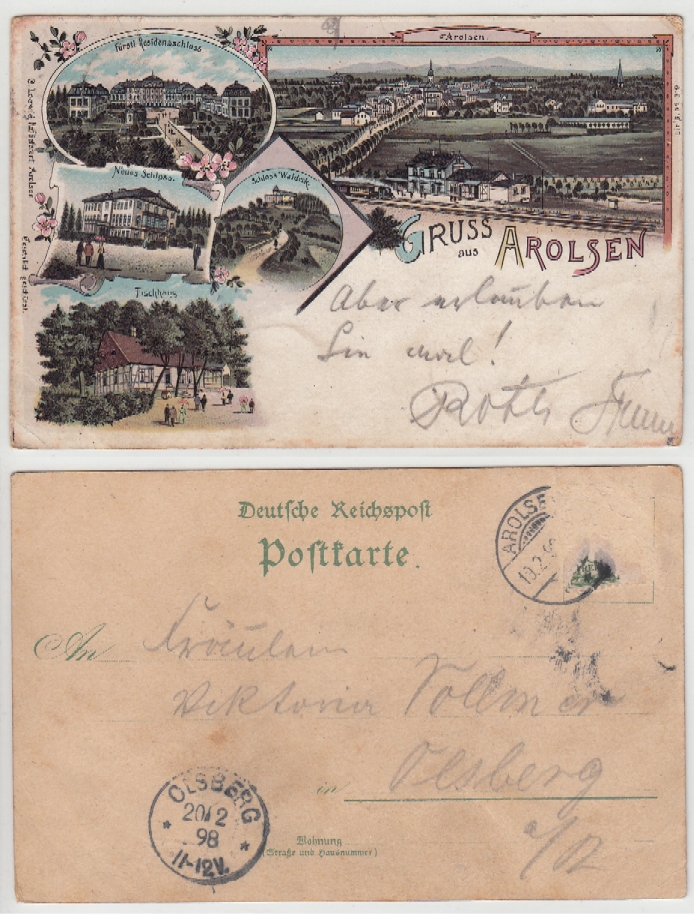 Fürstl. Residenzschloss
Arolsen.
Neues Schloss.
Schloss Waldeck.
Tischhaus
GRUSS
aus
AROLSEN
Aber erlauben
Sie mal!
Deutsche Reichspost
Postkarte.
AROLSE
An Fräulein
Viktoria Vollmer
in Olsberg
a/R
OLSBERG
20/2
98
11-12V.
Wohnung
(Straße und Hausnummer)